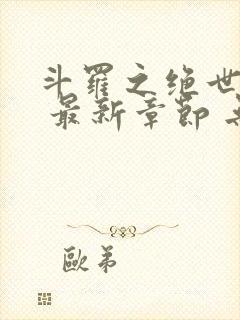 斗羅之绝世
最新章節
歐弟